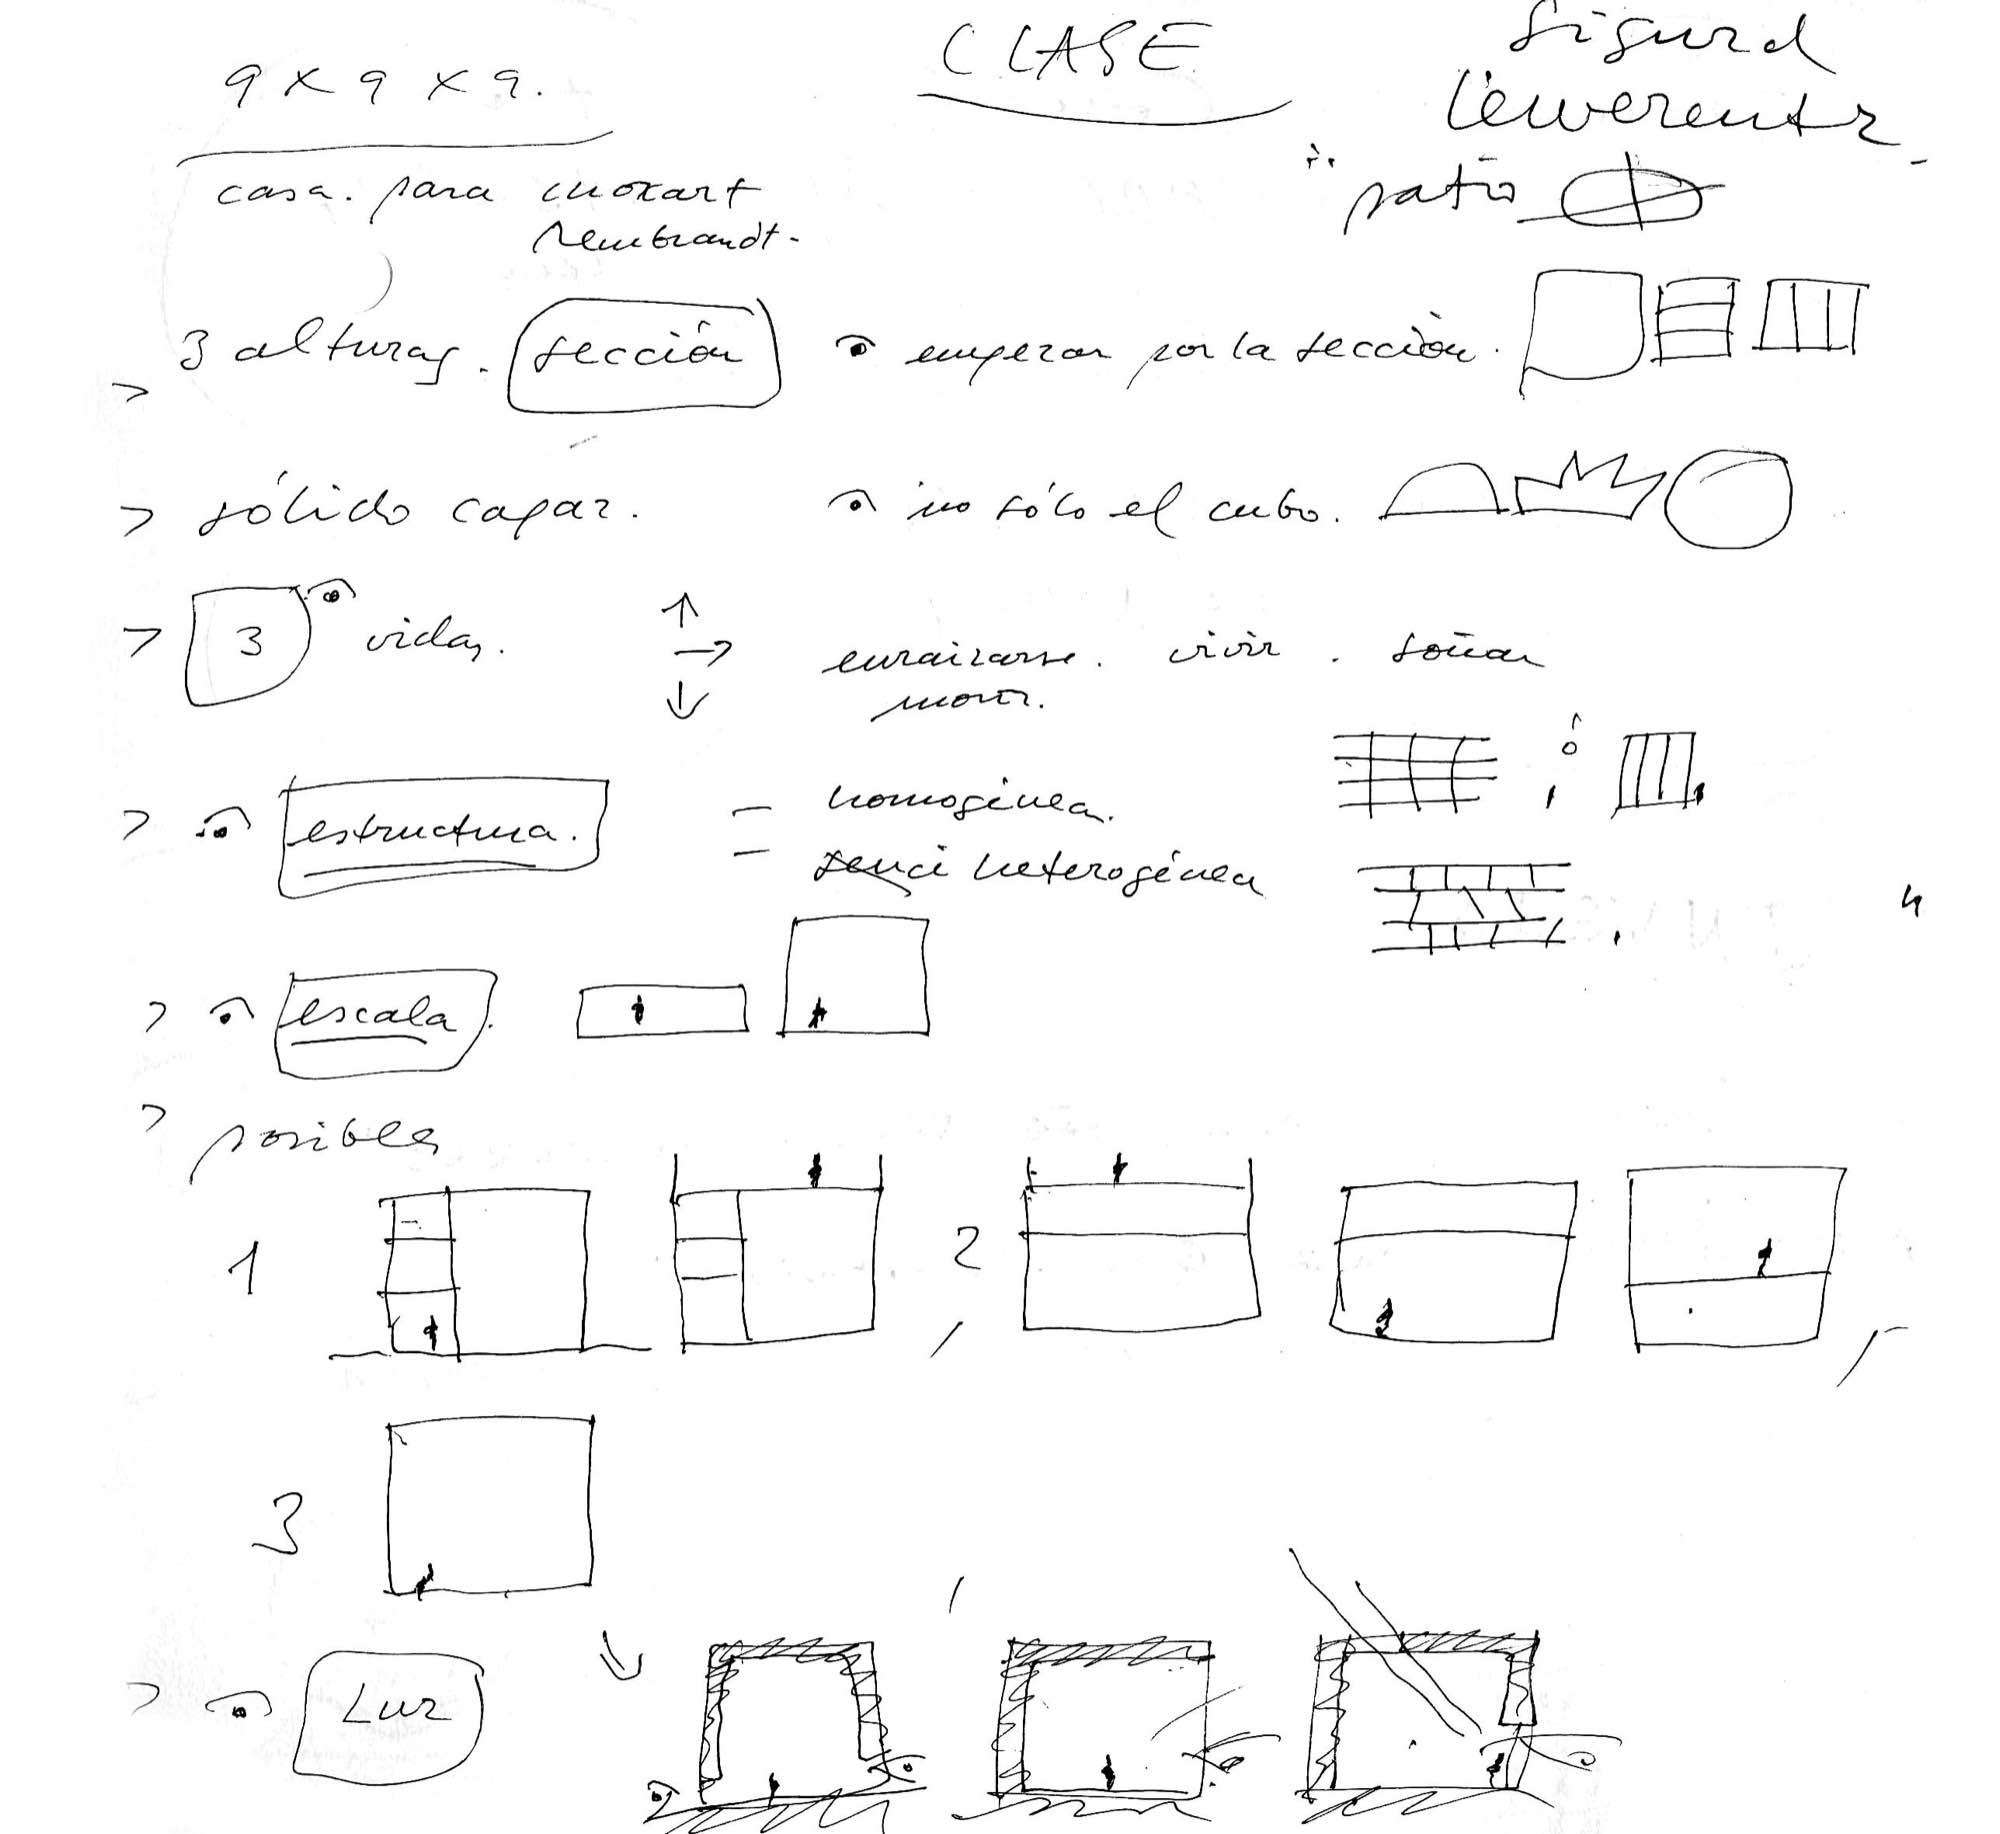 CLASE
Sigurd
Lewerentz
9 x 9 x 9.
casa. para mozart
Rembrandt.
patio
3 alturas. sección empezar por la sección.
> sólido capaz. no sólo el cubo.
> 3 vidas. ↑ → ↓ enraizarse. vivir. soñar
morir.
> estructura. - homogénea. ó
- heterogénea
> escala.
> posibles
1 2
3
> Luz